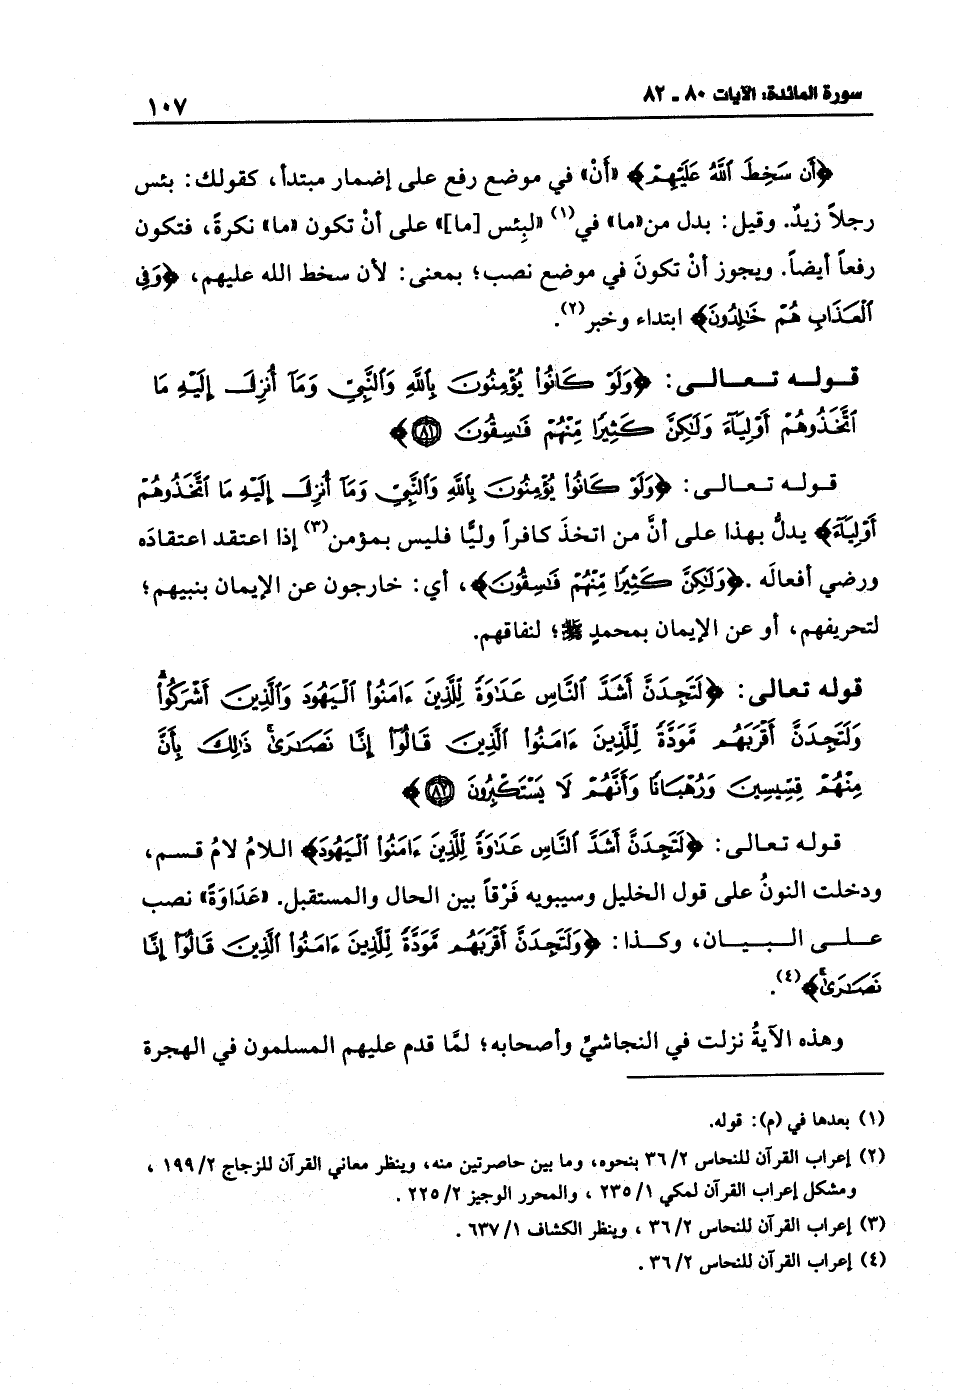 سورة المائدة: الآيات ٨٠ ـ ٨٢
١٠٧
﴿أَن سَخِطَ ٱللَّهُ عَلَيۡهِمۡ﴾ «أَنْ» في موضع رفع على إضمار مبتدأ، كقولك: بئس
رجلاً زيدٌ. وقيل: بدل من «ما» في(١) «لبِئس [ما]» على أنْ تكون «ما» نكرةً، فتكون
رفعاً أيضاً. ويجوز أنْ تكونَ في موضع نصب؛ بمعنى: لأن سخط الله عليهم، ﴿وَفِي
ٱلۡعَذَابِ هُمۡ خَٰلِدُونَ﴾ ابتداء وخبر(٢).
قوله تعالى: ﴿وَلَوۡ كَانُواْ يُؤۡمِنُونَ بِٱللَّهِ وَٱلنَّبِيِّ وَمَآ أُنزِلَ إِلَيۡهِ مَا
ٱتَّخَذُوهُمۡ أَوۡلِيَآءَ وَلَٰكِنَّ كَثِيرٗا مِّنۡهُمۡ فَٰسِقُونَ ٨١﴾
قوله تعالى: ﴿وَلَوۡ كَانُواْ يُؤۡمِنُونَ بِٱللَّهِ وَٱلنَّبِيِّ وَمَآ أُنزِلَ إِلَيۡهِ مَا ٱتَّخَذُوهُمۡ
أَوۡلِيَآءَ﴾ يدلُّ بهذا على أنَّ من اتخذ كافراً وليًّا فليس بمؤمن(٣) إذا اعتقد اعتقادَه
ورضي أفعالَه. ﴿وَلَٰكِنَّ كَثِيرٗا مِّنۡهُمۡ فَٰسِقُونَ﴾، أي: خارجون عن الإيمان بنبيهم؛
لتحريفهم، أو عن الإيمان بمحمدٍ ﷺ؛ لنفاقهم.
قوله تعالى: ﴿لَتَجِدَنَّ أَشَدَّ ٱلنَّاسِ عَدَٰوَةٗ لِّلَّذِينَ ءَامَنُواْ ٱلۡيَهُودَ وَٱلَّذِينَ أَشۡرَكُواْۖ
وَلَتَجِدَنَّ أَقۡرَبَهُم مَّوَدَّةٗ لِّلَّذِينَ ءَامَنُواْ ٱلَّذِينَ قَالُوٓاْ إِنَّا نَصَٰرَىٰۚ ذَٰلِكَ بِأَنَّ
مِنۡهُمۡ قِسِّيسِينَ وَرُهۡبَانٗا وَأَنَّهُمۡ لَا يَسۡتَكۡبِرُونَ ٨٢﴾
قوله تعالى: ﴿لَتَجِدَنَّ أَشَدَّ ٱلنَّاسِ عَدَٰوَةٗ لِّلَّذِينَ ءَامَنُواْ ٱلۡيَهُودَ﴾ اللامُ لامُ قسم،
ودخلت النونُ على قول الخليل وسيبويه فَرْقاً بين الحال والمستقبل. «عَدَاوَةً» نصب
على البيان، وكذا: ﴿وَلَتَجِدَنَّ أَقۡرَبَهُم مَّوَدَّةٗ لِّلَّذِينَ ءَامَنُواْ ٱلَّذِينَ قَالُوٓاْ إِنَّا
نَصَٰرَىٰۚ﴾(٤).
وهذه الآيةُ نزلت في النجاشيِّ وأصحابه؛ لمَّا قدم عليهم المسلمون في الهجرة
(١) بعدها في (م): قوله.
(٢) إعراب القرآن للنحاس ٣٦/٢ بنحوه، وما بين حاصرتين منه، وينظر معاني القرآن للزجاج ١٩٩/٢ ،
ومشكل إعراب القرآن لمكي ٢٣٥/١ ، والمحرر الوجيز ٢٢٥/٢ .
(٣) إعراب القرآن للنحاس ٣٦/٢ ، وينظر الكشاف ٦٣٧/١ .
(٤) إعراب القرآن للنحاس ٣٦/٢ .